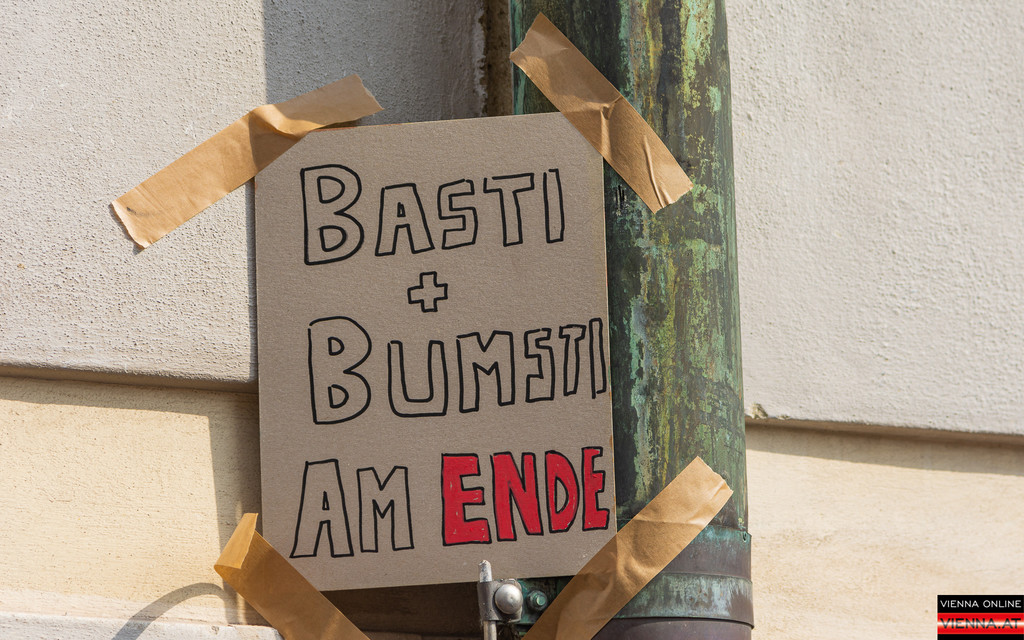 BASTI
+
BUMSTI
AM ENDE
VIENNA ONLINE
VIENNA.AT